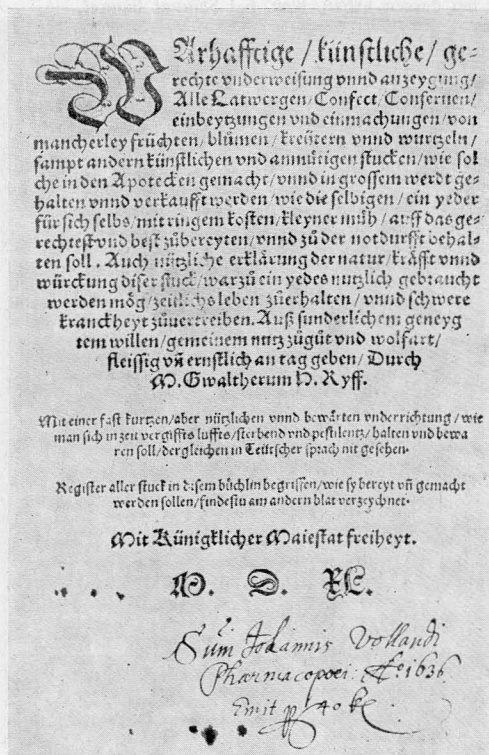 WArhafftige / künstliche / ge-
rechte vnderweisung vnnd anzeygung /
Alle Latwergen / Confect / Conseruen /
einbeytzungen vnd einmachungen / von
mancherley früchten / blůmen / kreütern vnnd wurtzeln /
sampt andern künstlichen vnd anmůtigen stucken / wie sol
che in den Apotecken gemacht / vnnd in grossem werdt ge-
halten vnnd verkaufft werden / wie die selbigen / ein yeder
für sich selbs / mit ringem kosten / kleyner můh / auff das ge-
rechtest vnd best zůbereyten / vnnd zů der notdurfft behal-
ten soll. Auch nützliche erklärung der natur / kräfft vnnd
würckung diser stuck / warzů ein yedes nutzlich gebraucht
werden mög / zeitlichs leben zůerhalten / vnnd schwere
kranckheyt zůuertreiben. Auß sunderlichem geneyg
tem willen / gemeinem nutz zůgůt vnd wolfart /
fleissig vñ ernstlich an tag geben / Durch
M. Gwaltherum H. Ryff.
Mit einer fast kurtzen / aber nützlichen vnnd bewärten vnderrichtung / wie
man sich in zeit vergiffts luffts / sterbend vnd pestilentz / halten vnd bewa
ren soll / dergleichen in Teütscher sprach nit gesehen.
Register aller stuck in disem büchlin begriffen / wie sy bereyt vñ gemacht
werden sollen / findestu am andern blat verzeychnet.
Mit Künigklicher Maiestat freiheyt.
M. D. XL.
Sum Johannis Vollandi
Pharmacopoei: Ao. 1636
Emit